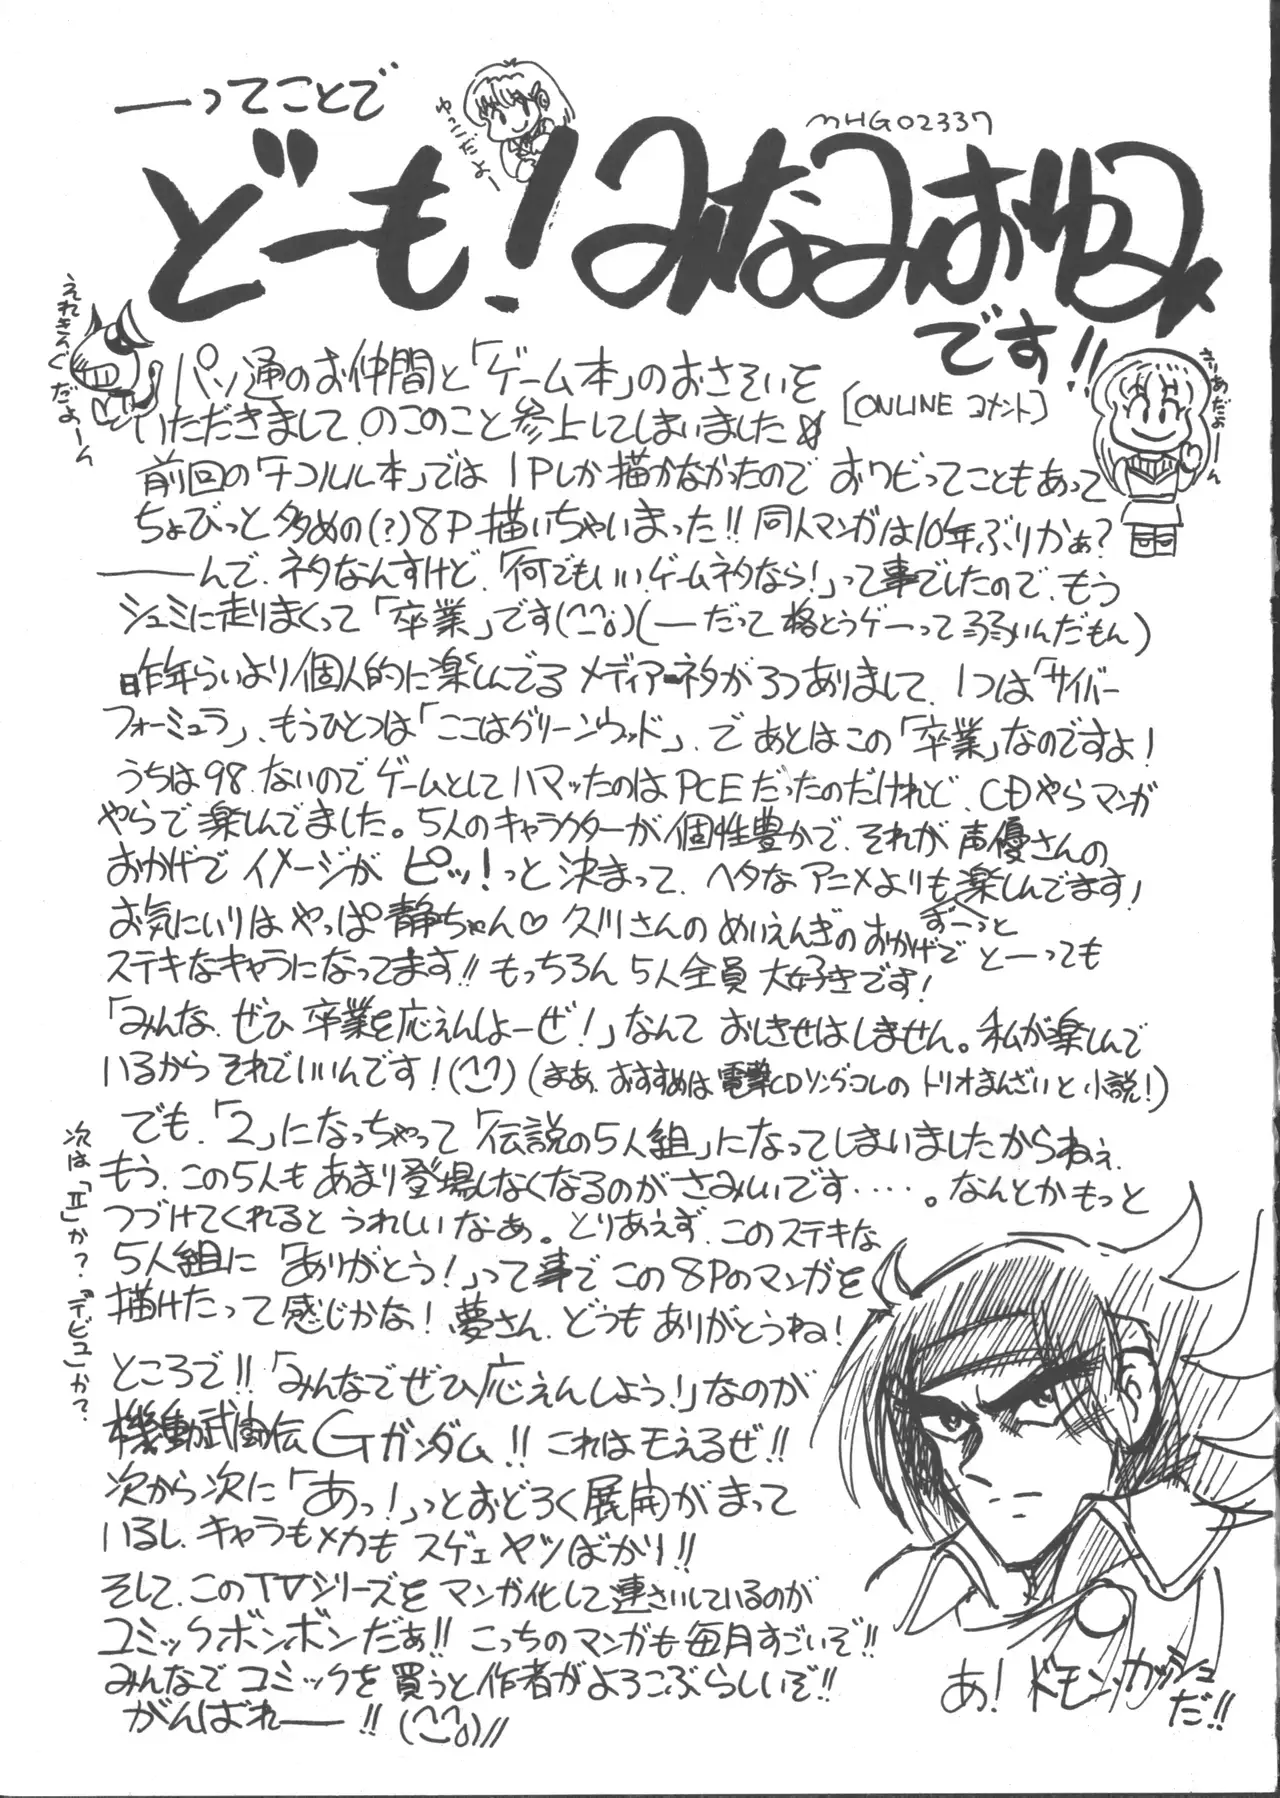 ――ってことで
ゆっこだよー
MHG02337
どーも！みなみおゆみ
です!!
えれきんぐだよーん
さりあだよーん
パソ通のお仲間と「ゲーム本」のおさそいを
いただきまして、のこのこと参上してしまいました☆
[ONLINE コメント]
前回の「ナコルル本」では1Pしか描かなかったので おワビってこともあって
ちょびっと多めの(?)8P描いちゃいまった!!同人マンガは10年ぶりかぁ?
―――んで、ネタなんすけど、「何でもいいゲームネタなら!」って事でしたので、もう
シュミに走りまくって「卒業」です(^^;)(―だって格とうゲーって弱いんだもん)
昨年らいより個人的に楽しんでるメディアネタが3つありまして、1つは「サイバー
フォーミュラ」、もうひとつは「ここはグリーンウッド」、であとはこの「卒業」なのですよ!
うちは98、ないのでゲームとしてハマッたのはPCEだったのだけれど、CDやらマンガ
やらで楽しんでました。5人のキャラクターが個性豊かで、それが声優さんの
おかげでイメージがピッ!っと決まって、ヘタなアニメよりも楽しんでます!
お気にいりはやっぱ静ちゃん♡久川さんのめいえんぎのおかげでずーっととーっても
ステキなキャラになってます!!もっちろん5人全員大好きです!
「みんな、ぜひ卒業を応えんしよーぜ!」なんておしきせはしません。私が楽しんで
いるからそれでいいんです!(^^)(まあ、おすすめは電撃CDソングコレのトリオまんざいと小説!)
でも、「2」になっちゃって「伝説の5人組」になってしまいましたからねぇ、
もう、この5人もあまり登場しなくなるのがさみしいです‥‥。なんとかもっと
つづけてくれるとうれしいなぁ。とりあえず、このステキな
5人組に「ありがとう!」って事でこの8Pのマンガを
描けたって感じかな!夢さん、どうもありがとうね!
次は「Ⅱ」か?『デビュ』かて?
ところで!!「みんなでぜひ応えんしよう!」なのが
機動武闘伝Gガンダム!!これはモえるぜ!!
次から次に「あっ!」っとおどろく展開がまって
いるし、キャラもメカもスゲェヤツばかり!!
そして、このTVシリーズをマンガ化して連さいしているのが
コミックボンボンだぁ!!こっちのマンガも毎月すごいぞ!!
みんなでコミックを買うと作者がよろこぶらしいぞ!!
がんばれ――!!(^^;)//
あ!ドモン、カッシュ
だ!!